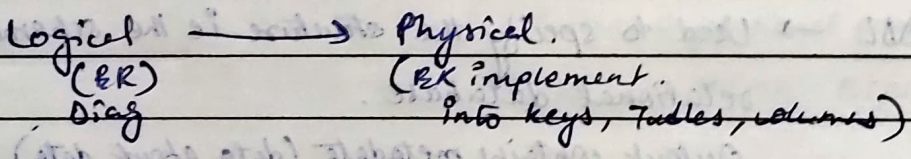 Logical → Physical.
(ER) (ER implement.
Diag into keys, Tables, columns)